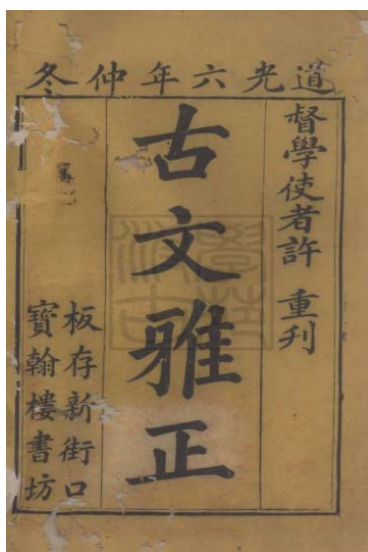 道光六年仲冬
督學使者許 重刊
古文雅正
板存新街口
寶翰樓書坊